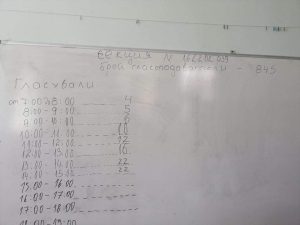 СЕКЦИЯ N
брой гласоподаватели - 845
Гласували
от 7:00 до 8:00 4
8:00 - 9:00 5
9:00 - 10:00
10:00 - 11:00 10
11:00 - 12:00 12
12:00 - 13:00 10
13:00 - 14:00 22
14:00 - 15:00 22
15:00 - 16:00
16:00 - 17:00
17:00 - 18:00